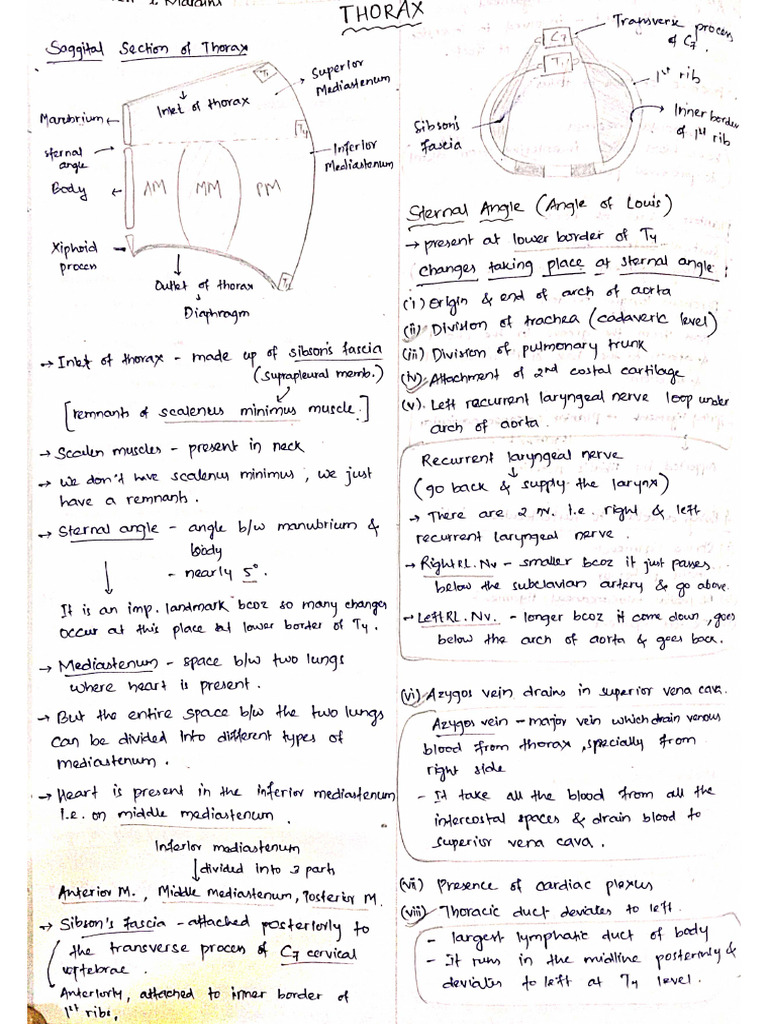 THORAX
Saggital Section of Thorax
Inlet of thorax
T1
Superior
Mediastenum
Manubrium
T4
sternal
angle
Inferior
Mediastenum
Body
AM
MM
PM
Xiphoid
process
Outlet of thorax
Diaphragm
→ Inlet of thorax - made up of sibson's fascia
(suprapleural memb.)
[remnants of scalenus minimus muscle.]
→ Scalen muscles - present in neck
→ we don't have scalenus minimus, we just
have a remnant.
→ Sternal angle - angle b/w manubrium &
body
- nearly 5°.
It is an imp. landmark bcoz so many changes
occur at this place at lower border of T4.
→ Mediastenum - space b/w two lungs
where heart is present.
→ But the entire space b/w the two lungs
can be divided into different types of
mediastenum.
→ Heart is present in the inferior mediastenum
i.e. on middle mediastenum.
Inferior mediastenum
↓ divided into 3 parts
Anterior M., Middle mediastenum, Posterior M.
→ Sibson's fascia - attached posteriorly to
the transverse process of C7 cervical
vertebrae.
Anteriorly, attached to inner border of
1st ribs.
C7
Transverse process
of C7.
T1
1st rib
Sibson's
fascia
Inner border
of 1st rib
Sternal Angle (Angle of Louis)
→ present at lower border of T4
changes taking place at sternal angle:
(i) Origin & end of arch of aorta
(ii) Division of trachea (cadaveric level)
(iii) Division of pulmonary trunk
(iv) Attachment of 2nd costal cartilage
(v). Left recurrent laryngeal nerve loop under
arch of aorta.
Recurrent laryngeal nerve
↓
(go back & supply the larynx)
→ There are 2 nv. i.e. right & left
recurrent laryngeal nerve.
→ Right RL. Nv - smaller bcoz it just passes
below the subclavian artery & go above.
→ Left RL. Nv. - longer bcoz it come down, goes
below the arch of aorta & goes back.
(vi) Azygos vein drains in superior vena cava.
Azygos vein - major vein which drain venous
blood from thorax, specially from
right side
- It take all the blood from all the
intercostal spaces & drain blood to
superior vena cava.
(vii) Presence of cardiac plexus
(viii) Thoracic duct deviates to left.
- largest lymphatic duct of body
- It runs in the midline posteriorly &
deviates to left at T4 level.